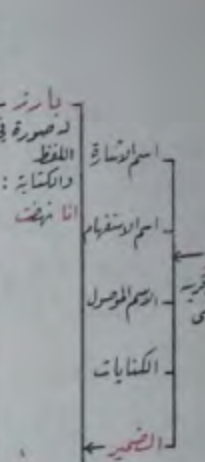 بارز
له صورة في
اللفظ
والكتابة :
انا نهضت
اسم الاشارة
اسم الاستفهام
الاسم الموصول
الكنايات
الضمير